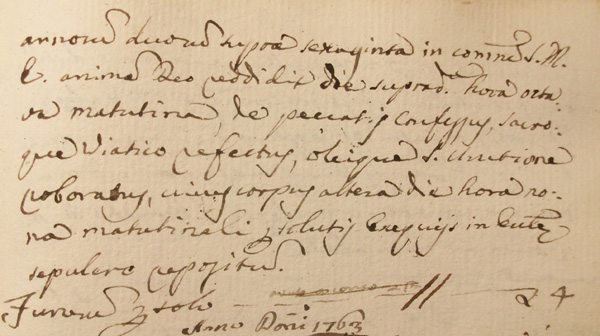 annorũ duorũ supra sexaginta in comne S. M.
E. animã Deo reddidit die suprad.ª hora octa
va matutina, de peccatis confessus, sacro-
que Viatico refectus, oleique S. Unctione
roboratus, cuius corpus altera die hora no-
na matutinali, solutis Exequijs in
sepulcro repositũ.
Funerũ solo 24
Anno Dñi 1763